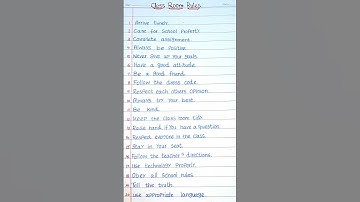 Class Room Rules
1 Arrive timely.
2 Care for School Property.
3 Complete assignment.
4 Always be Positive.
5 Never give up your goals.
6 Have a good attitude.
7 Be a Good friend.
8 Follow the dress code.
9 Respect each others opinion.
10 Always try your best.
11 Be kind.
12 Keep the class room tidy.
13 Raise hand if you have a question.
14 Respect everyone in the class.
15 Stay in your seat.
16 Follow the teacher's directions.
17 Use technology Properly.
18 Obey all School rules.
19 Tell the truth.
20 Use appropriate language.